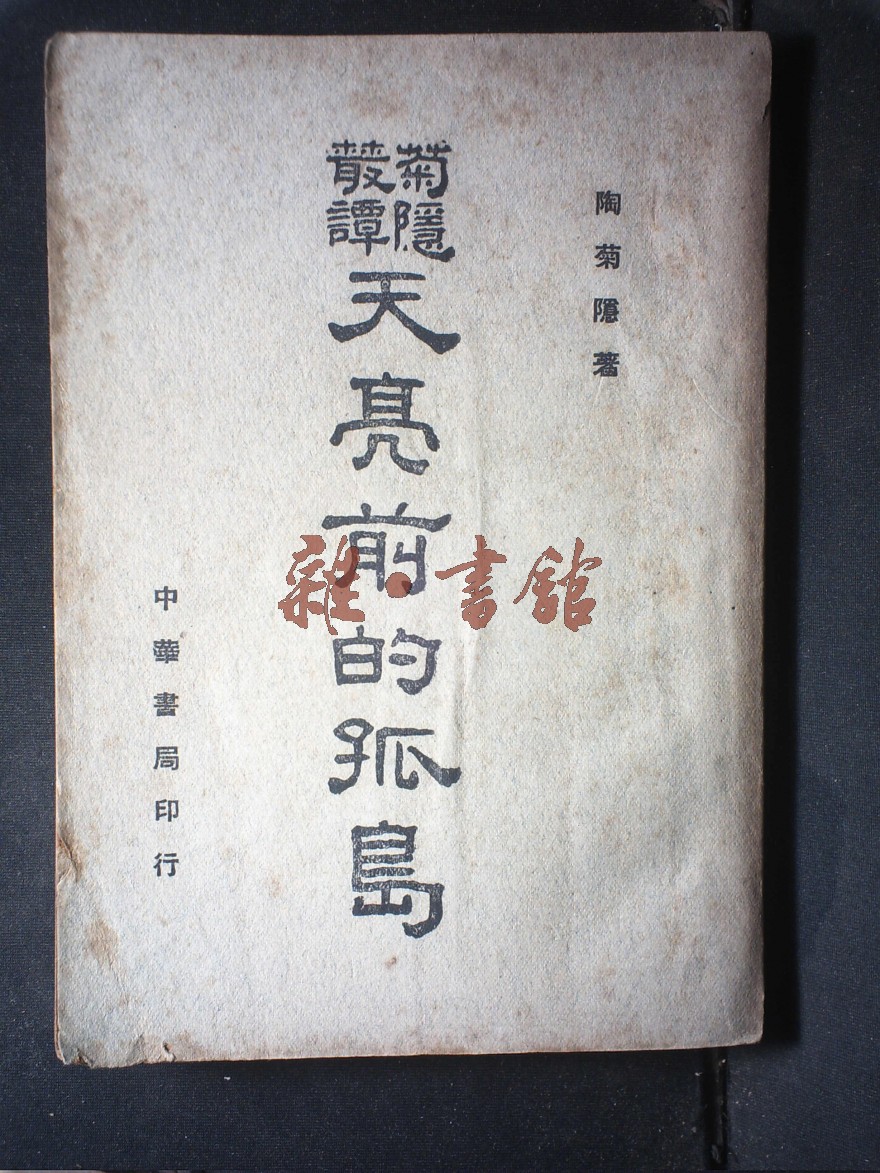 陶菊隱著
菊隱
叢譚
天亮前的孤島
中華書局印行
雜·書館